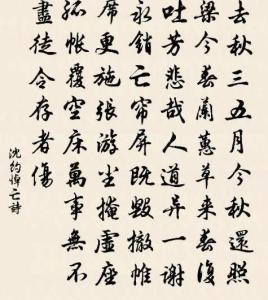 去秋三五月今秋還照
梁今春蘭蕙草来春復
吐芳悲哉人道异一謝
永銷亡帘屏既毀撤帷
席更施張游尘掩虛座
孤帳覆空床萬事無不
盡徒令存者傷
沈約悼亡詩